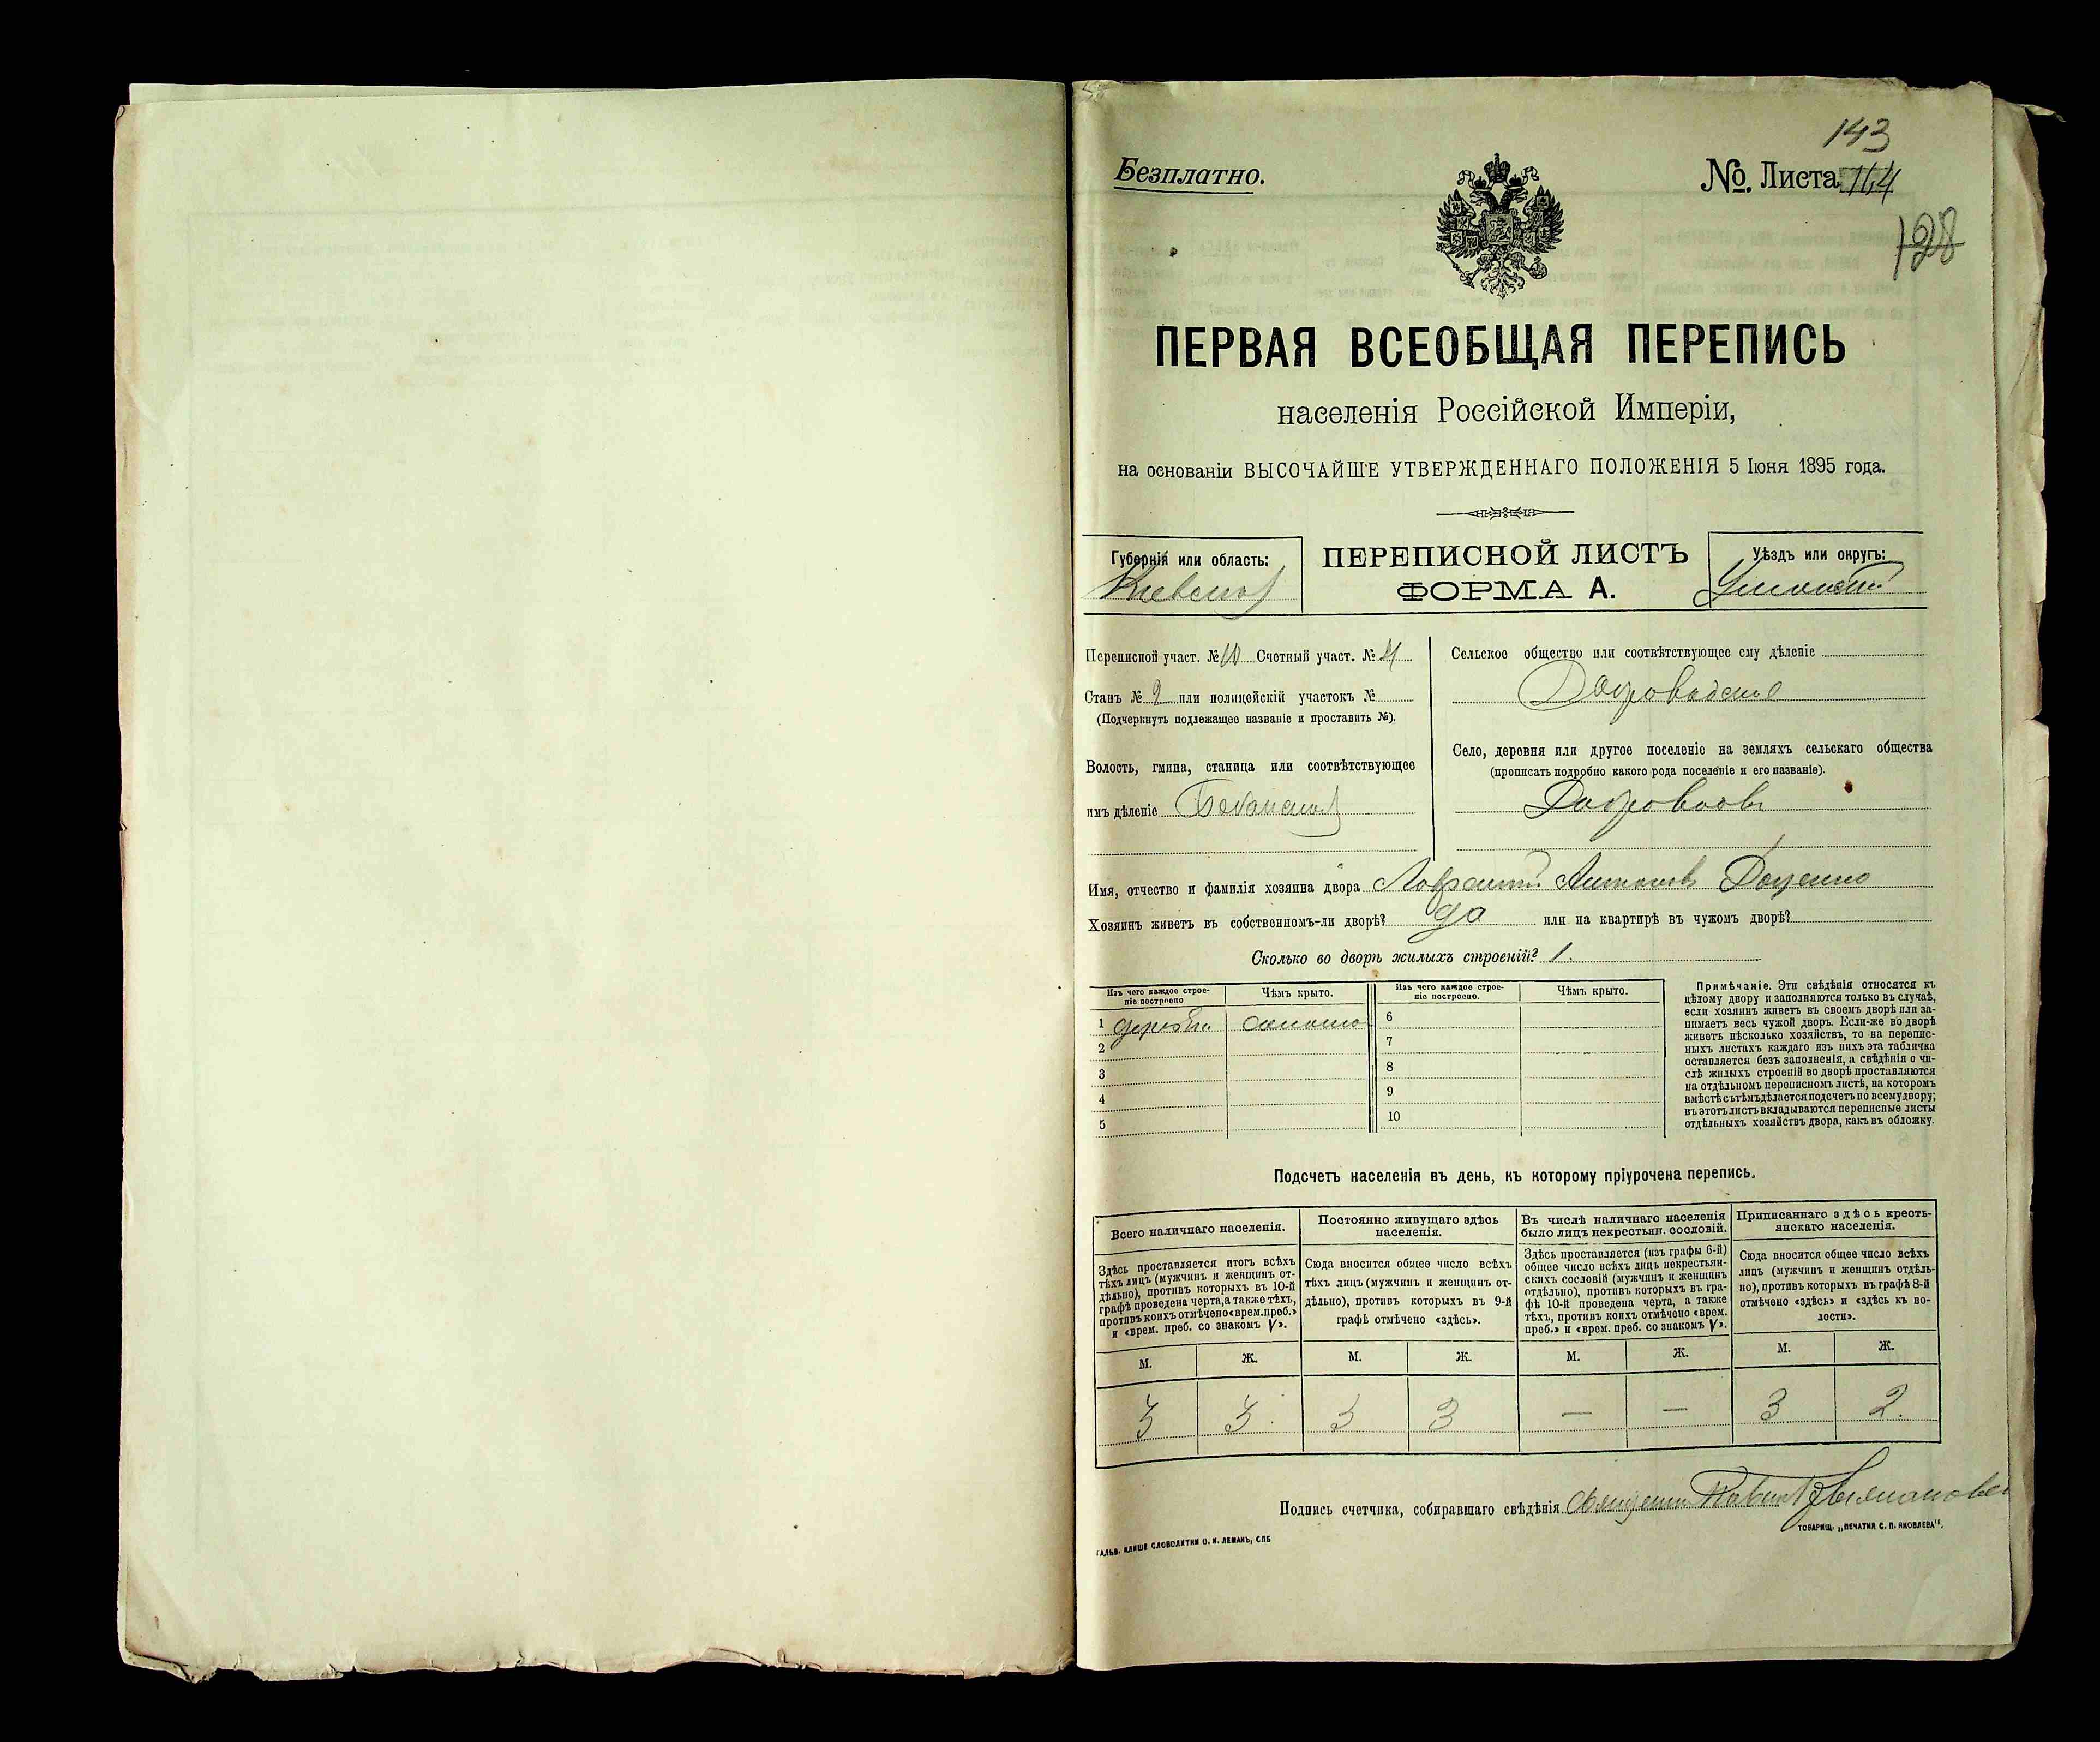 143
Безплатно.
№. Листа 144
128
ПЕРВАЯ ВСЕОБЩАЯ ПЕРЕПИСЬ
населенія Россійской Имперіи,
на основаніи ВЫСОЧАЙШЕ УТВЕРЖДЕННАГО ПОЛОЖЕНІЯ 5 Іюня 1895 года.
Губернія или область:
Кіевская
ПЕРЕПИСНОЙ ЛИСТЪ
ФОРМА А.
Уѣздъ или округъ:
Уманскій
Переписной участ. № 10 Счетный участ. № 4
Станъ № 2 или полицейскій участокъ №
(Подчеркнуть подлежащее названіе и проставить №).
Волость, гмина, станица или соотвѣтствующее
имъ дѣленіе
Сельское общество или соотвѣтствующее ему дѣленіе
Село, деревня или другое поселеніе на земляхъ сельскаго общества
(прописать подробно какого рода поселеніе и его названіе).
Имя, отчество и фамилія хозяина двора Лаврентій Антоновъ Доценко
Хозяинъ живетъ въ собственномъ-ли дворѣ? да или на квартирѣ въ чужомъ дворѣ?
Сколько во дворѣ жилыхъ строеній? 1.
Изъ чего каждое строе-
ніе построено
Чѣмъ крыто.
Изъ чего каждое строе-
ніе построено.
Чѣмъ крыто.
1 дерев. солома
2
3
4
5
6
7
8
9
10
Примѣчаніе. Эти свѣдѣнія относятся къ
цѣлому двору и заполняются только въ случаѣ,
если хозяинъ живетъ въ своемъ дворѣ или за-
нимаетъ весь чужой дворъ. Если-же во дворѣ
живетъ нѣсколько хозяйствъ, то на перепис-
ныхъ листахъ каждаго изъ нихъ эта табличка
оставляется безъ заполненія, а свѣдѣнія о чи-
слѣ жилыхъ строеній во дворѣ проставляются
на отдѣльномъ переписномъ листѣ, на которомъ
вмѣстѣ съ тѣмъ дѣлается подсчетъ по всему двору;
въ этотъ листъ вкладываются переписные листы
отдѣльныхъ хозяйствъ двора, какъ въ обложку.
Подсчетъ населенія въ день, къ которому пріурочена перепись.
Всего наличнаго населенія.
Здѣсь проставляется итогъ всѣхъ
тѣхъ лицъ (мужчинъ и женщинъ от-
дѣльно), противъ которыхъ въ 10-й
графѣ проведена черта, а также тѣхъ,
противъ коихъ отмѣчено «врем. преб.»
и «врем. преб. со знакомъ V».
Постоянно живущаго здѣсь
населенія.
Сюда вносится общее число всѣхъ
тѣхъ лицъ (мужчинъ и женщинъ от-
дѣльно), противъ которыхъ въ 9-й
графѣ отмѣчено «здѣсь».
Въ числѣ наличнаго населенія
было лицъ некрестьян. сословій.
Здѣсь проставляется (изъ графы 6-й)
общее число всѣхъ лицъ некрестьян-
скихъ сословій (мужчинъ и женщинъ
отдѣльно), противъ которыхъ въ гра-
фѣ 10-й проведена черта, а также
тѣхъ, противъ коихъ отмѣчено «врем.
преб.» и «врем. преб. со знакомъ V».
Приписаннаго здѣсь кресть-
янскаго населенія.
Сюда вносится общее число всѣхъ
лицъ (мужчинъ и женщинъ отдѣль-
но), противъ которыхъ въ графѣ 8-й
отмѣчено «здѣсь» и «здѣсь къ во-
лости».
М. Ж. М. Ж. М. Ж. М. Ж.
3 3. 3 3 — — 3 2.
Подпись счетчика, собиравшаго свѣдѣнія
ГАЛЬВ. КЛИШЕ СЛОВОЛИТНИ О. И. ЛЕМАНЪ, СПБ
ТОВАРИЩ. „ПЕЧАТНЯ С. П. ЯКОВЛЕВА".